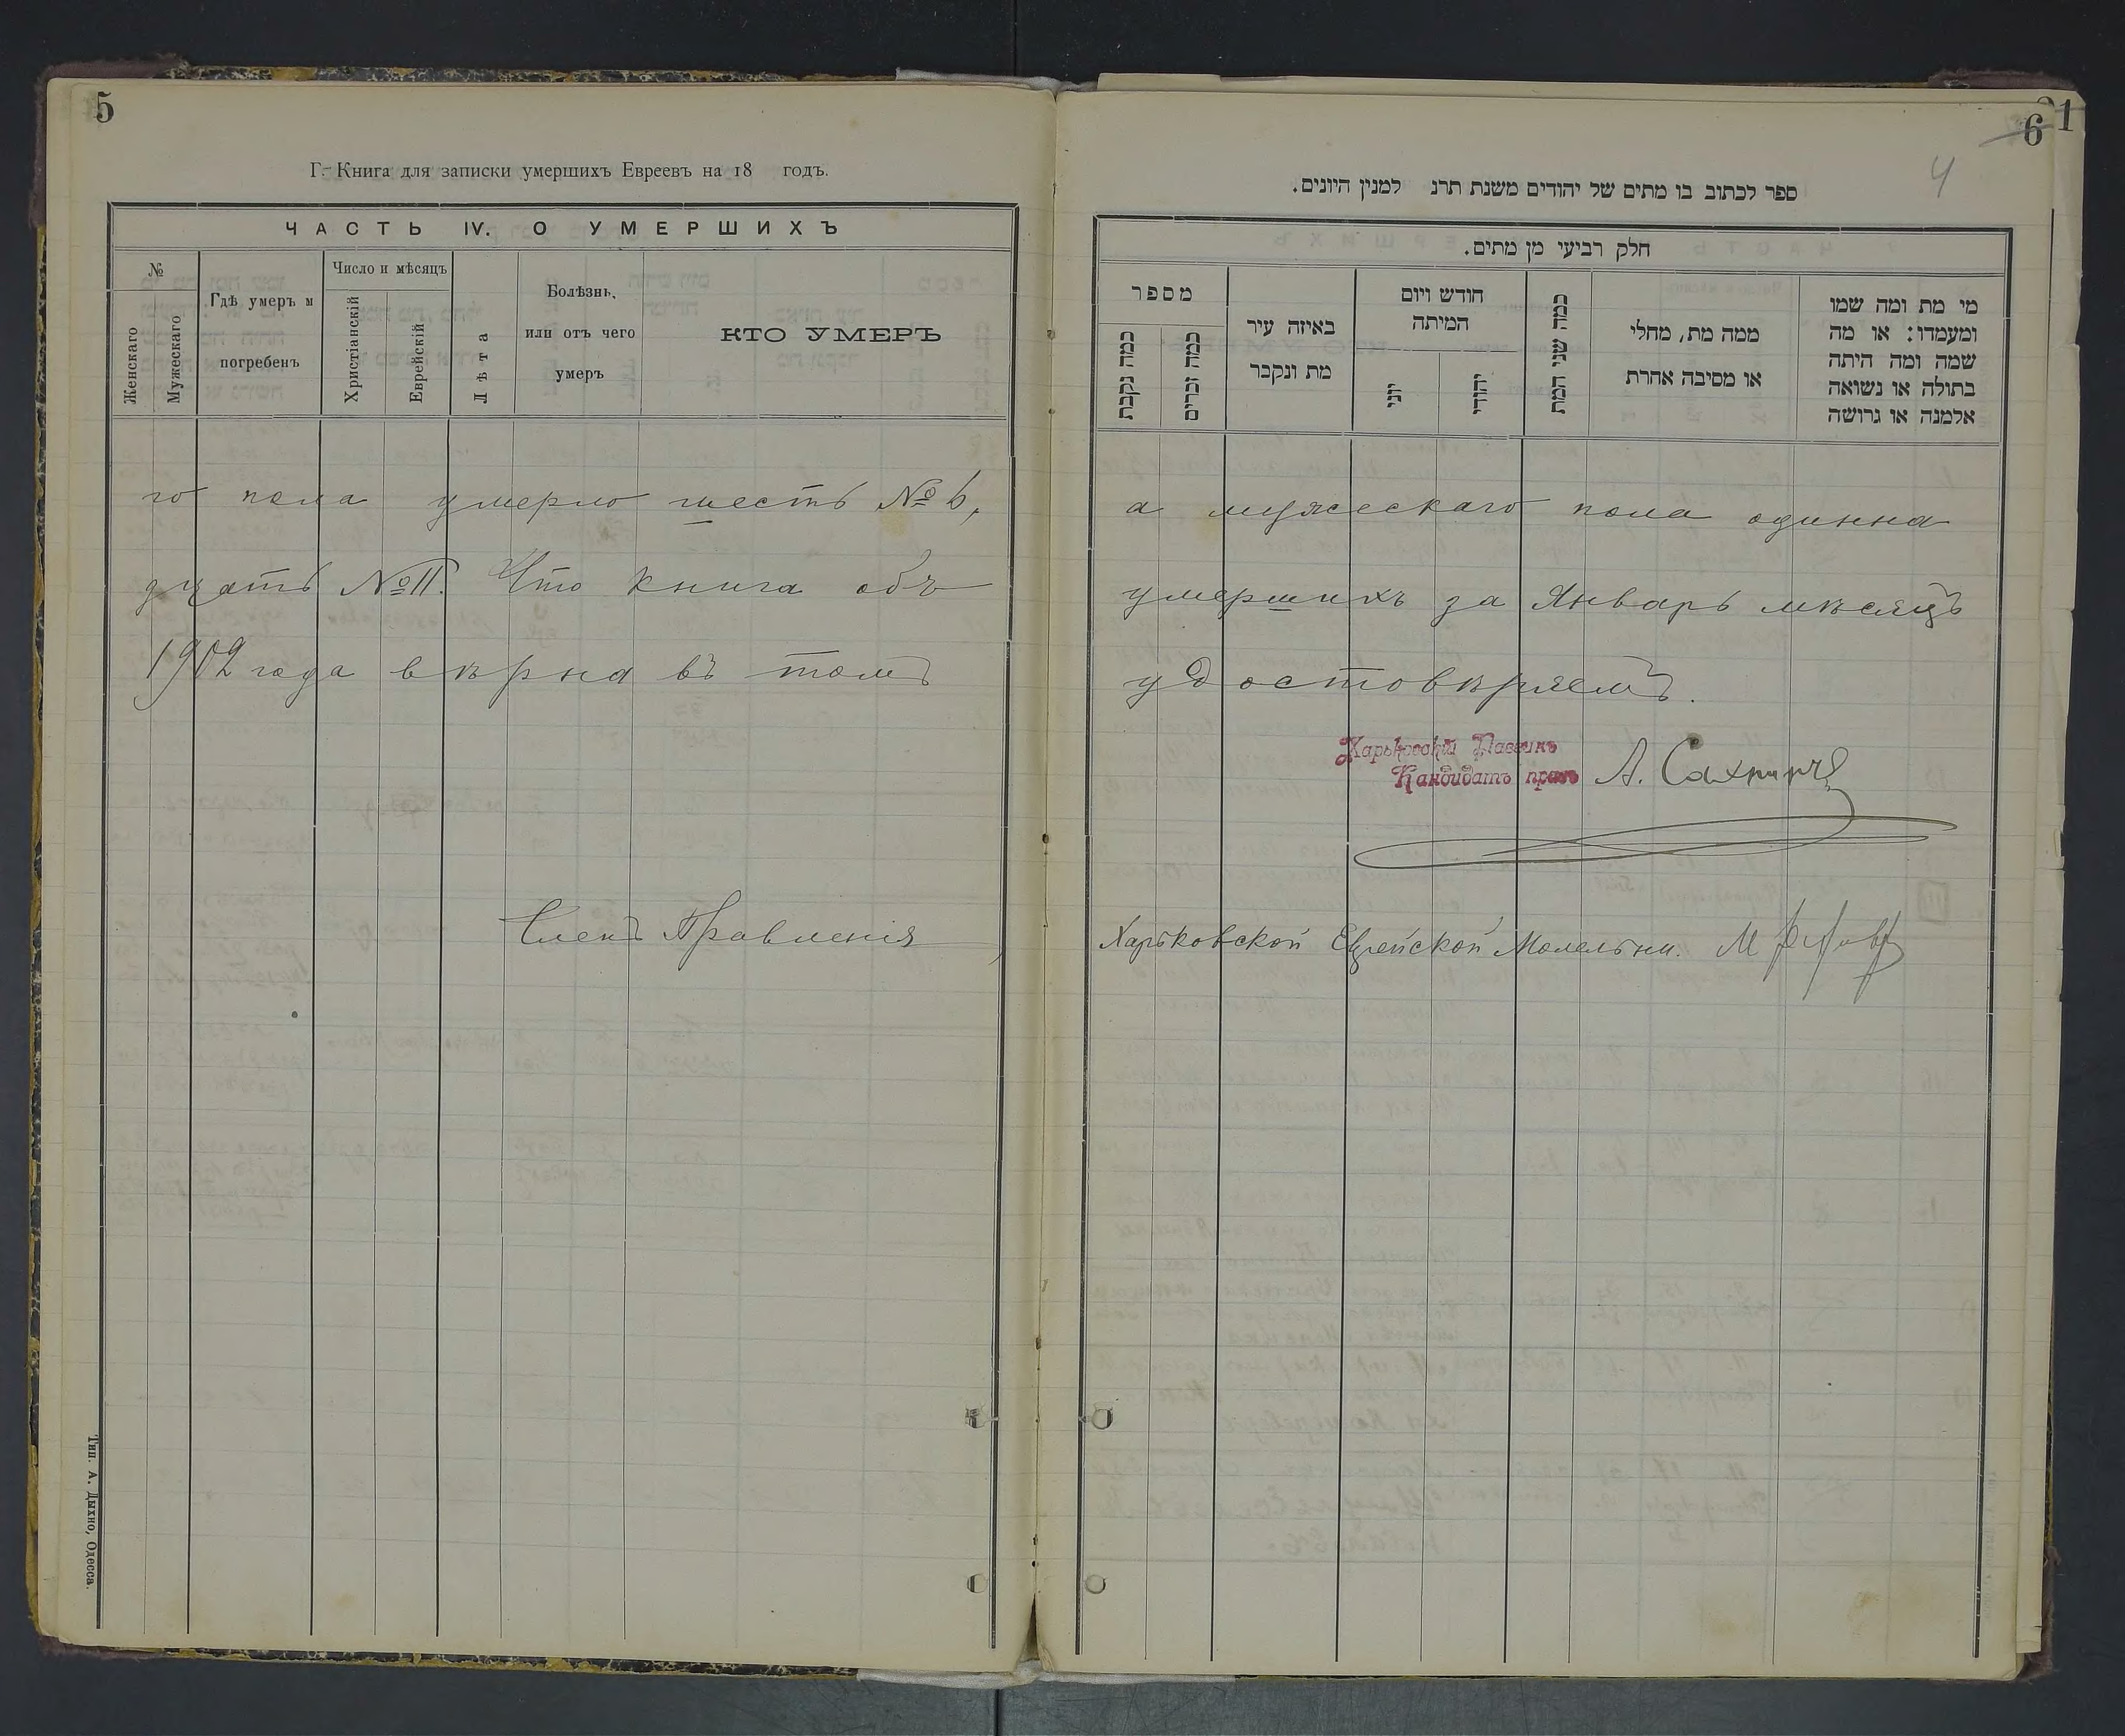 5
Г. Книга для записки умершихъ Евреевъ на 18 годъ.
ЧАСТЬ IV. О УМЕРШИХЪ
№
Женскаго
Мужескаго
Гдѣ умеръ и
погребенъ
Число и мѣсяцъ
Христіанскій
Еврейскій
Лѣта
Болѣзнь,
или отъ чего
умеръ
КТО УМЕРЪ
го пола умерло шесть № 6,
дцать № 11. Что книга объ
1902 года вѣрна въ томъ
Членъ Правленія
Тип. А. Дыхно, Одесса.
6
1
4
ספר לכתוב בו מתים של יהודים משנת תרנ למנין היונים.
חלק רביעי מן מתים.
מספר
כמה נקבת
כמה זכרים
באיזה עיר
מת ונקבר
חודש ויום
המיתה
יוני
יהודי
כמה שני המת
ממה מת, מחלי
או מסיבה אחרת
מי מת ומה שמו
ומעמדו: או מה
שמה ומה היתה
בתולה או נשואה
אלמנה או גרושה
а мужескаго пола одинна
умершихъ за Январь мѣсяцъ
удостовѣряемъ.
Харьковскій Раввинъ
Кандидатъ правъ А.
Харьковской Еврейской Молельни. М